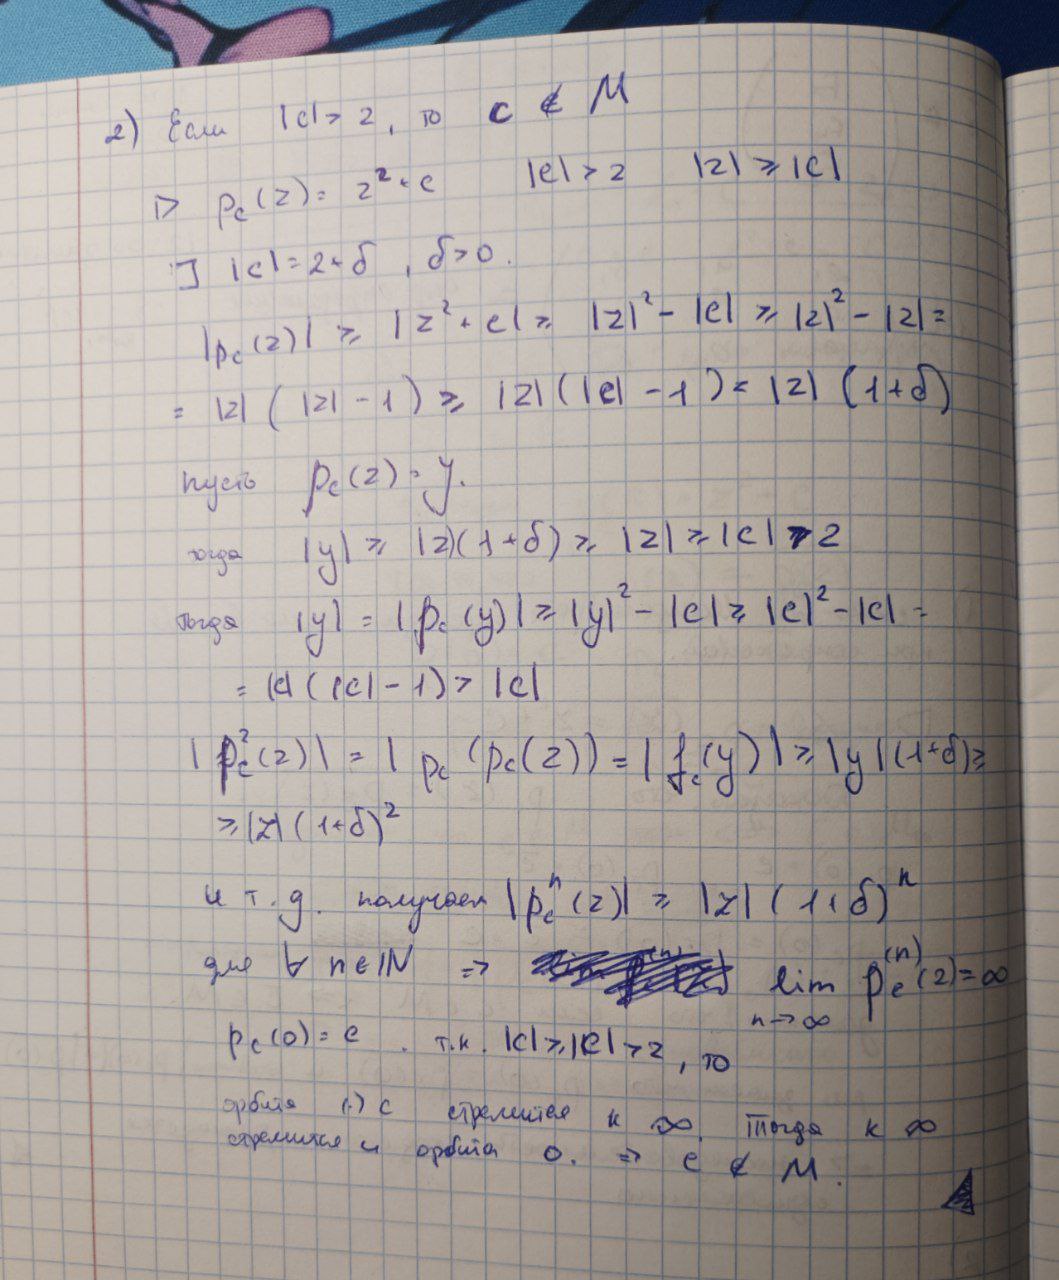 2) Если |c| > 2, то c ∉ M
▷ p_c(z) = z² + c |c| > 2 |z| ⩾ |c|
] |c| = 2 + δ, δ > 0.
|p_c(z)| ⩾ |z² + c| ⩾ |z|² - |c| ⩾ |z|² - |z| =
= |z| (|z| - 1) ⩾ |z| (|c| - 1) = |z| (1 + δ)
пусть p_c(z) = y.
тогда |y| ⩾ |z|(1 + δ) ⩾ |z| ⩾ |c| > 2
тогда |y| = |p_c(y)| ⩾ |y|² - |c| ⩾ |c|² - |c| =
= |c| (|c| - 1) > |c|
|p_c²(z)| = |p_c(p_c(z)) = |f_c(y)| ⩾ |y|(1 + δ) ⩾
⩾ |z| (1 + δ)²
и т. д. получаем |p_cⁿ(z)| ⩾ |z| (1 + δ)ⁿ
для ∀ n ∈ ℕ ⇒ lim p_c⁽ⁿ⁾(z) = ∞
n → ∞
p_c(0) = c. т.к. |c| ⩾ |c| > 2, то
орбита (·) c стремится к ∞. Тогда к ∞
стремится и орбита 0. ⇒ c ∉ M.